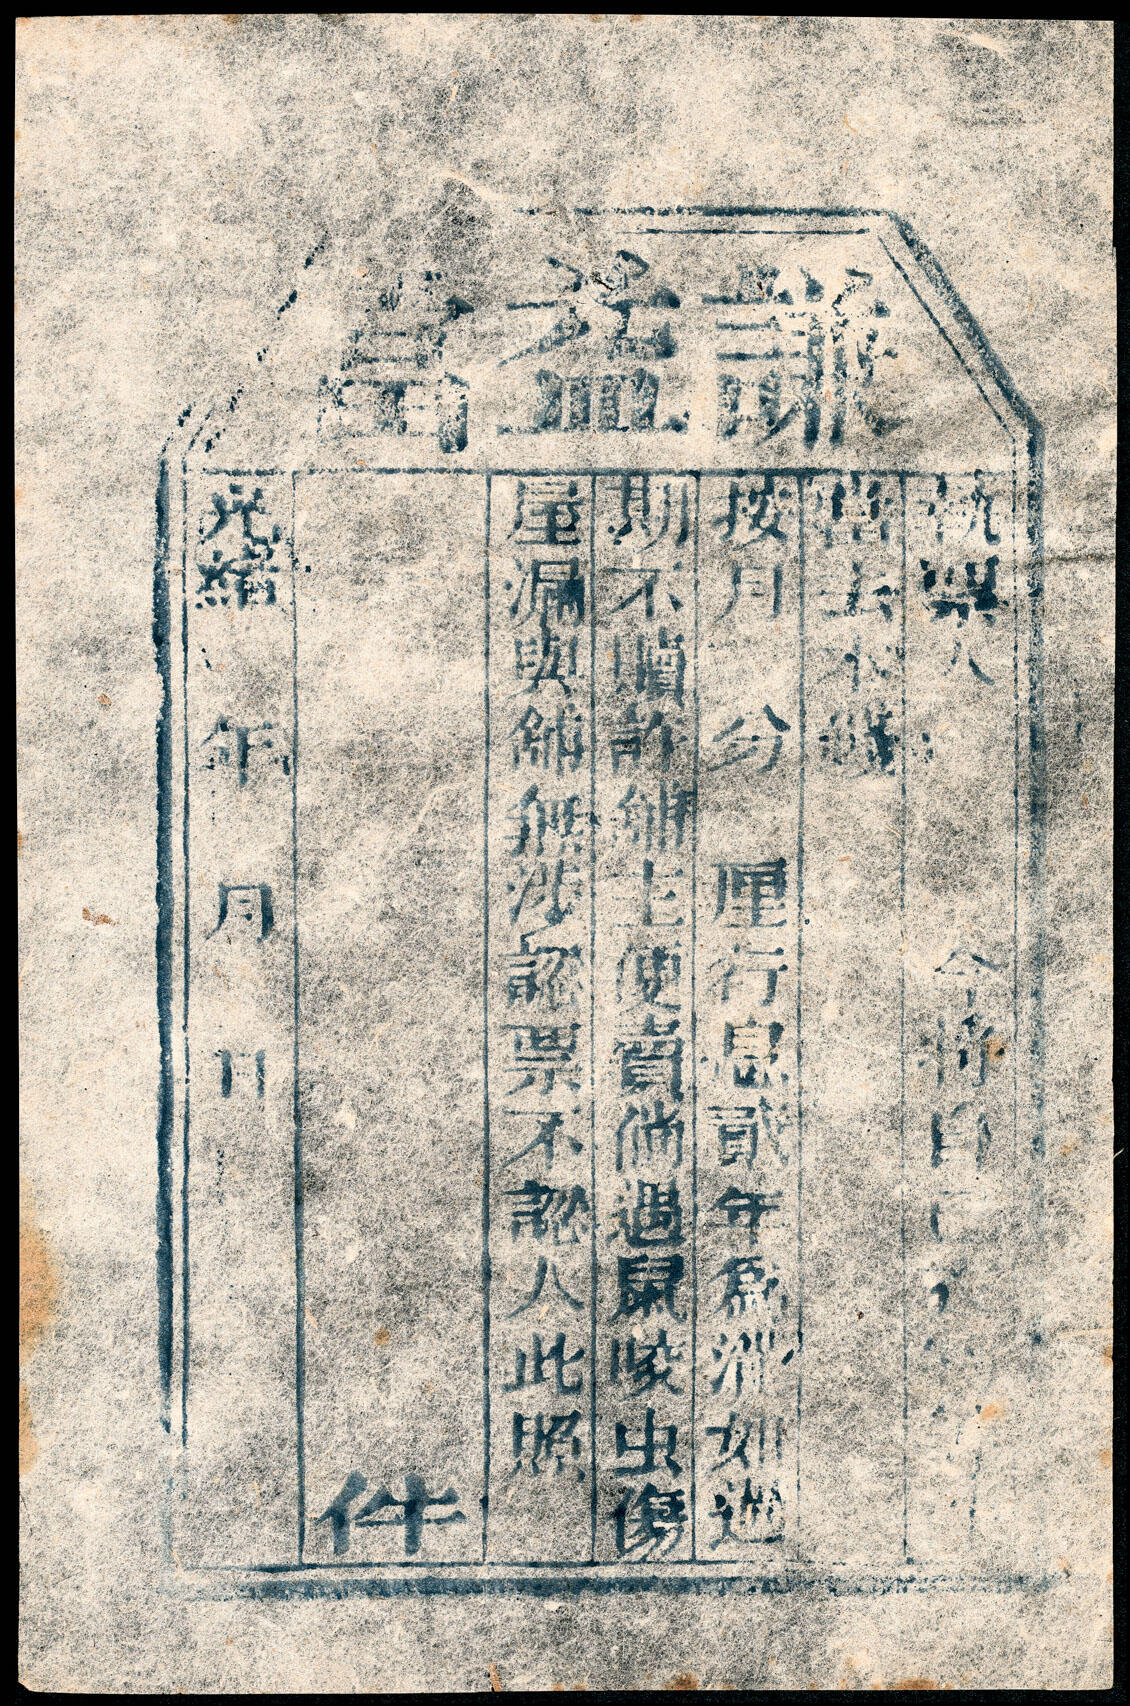 謙益當
執票人 今將自己
當去本錢
按月 分 厘行息貳年為滿如過
期不贖許鋪主便賣倘遇鼠咬虫傷
屋漏與鋪無涉認票不認人此照
件
光緒 年 月 日